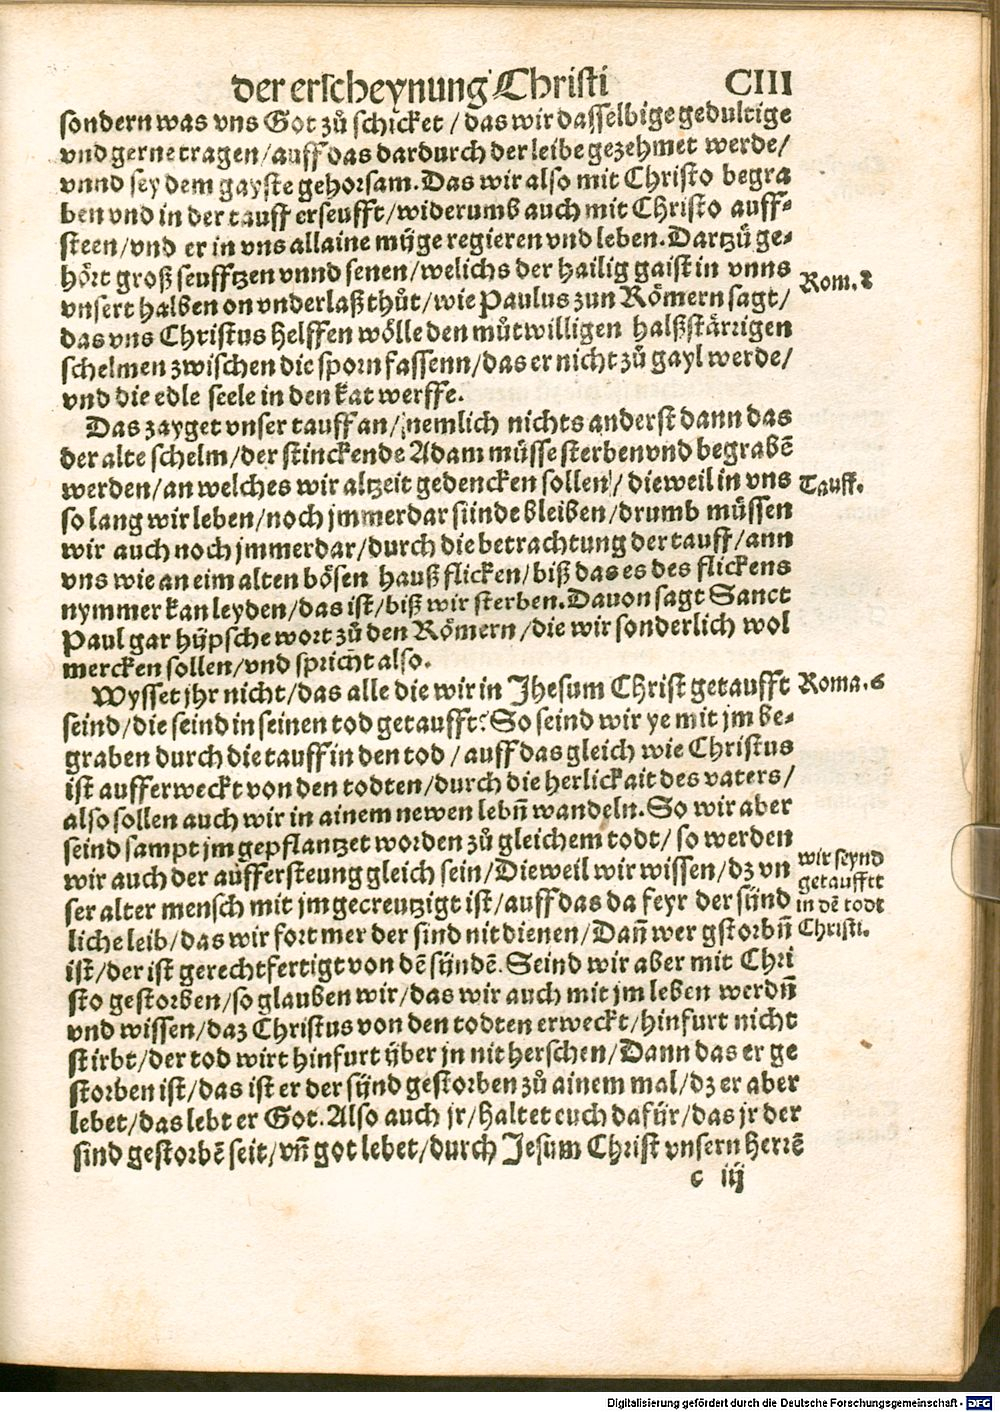 der erscheynung Christi CIII
sondern was vns Got zů schicket / das wir dasselbige gedultige
vnd gerne tragen / auff das dardurch der leibe gezehmet werde /
vnnd sey dem gayste gehorsam. Das wir also mit Christo begra
ben vnd in der tauff erseufft / widerumb auch mit Christo auff-
steen / vnd er in vns allaine müge regieren vnd leben. Dartzů ge-
hört groß seufftzen vnnd senen / welichs der hailig gaist in vnns
Rom. 8
vnsert halben on vnderlaß thůt / wie Paulus zun Römern sagt /
das vns Christus helffen wölle den můtwilligen halßstärrigen
schelmen zwischen die sporn fassenn / das er nicht zů gayl werde /
vnd die edle seele in den kat werffe.
Das zayget vnser tauff an / nemlich nichts anderst dann das
der alte schelm / der stinckende Adam müsse sterben vnd begrabē
werden / an welches wir altzeit gedencken sollen / dieweil in vns
Tauff.
so lang wir leben / noch jmmerdar sünde bleiben / drumb müssen
wir auch noch jmmerdar / durch die betrachtung der tauff / ann
vns wie an eim alten bösen hauß flicken / biß das es des flickens
nymmer kan leyden / das ist / biß wir sterben. Dauon sagt Sanct
Paul gar hüpsche wort zů den Römern / die wir sonderlich wol
mercken sollen / vnd spricht also.
Wysset jhr nicht / das alle die wir in Jhesum Christ getaufft
Roma. 6
seind / die seind in seinen tod getaufft? So seind wir ye mit jm be-
graben durch die tauff in den tod / auff das gleich wie Christus
ist aufferweckt von den todten / durch die herlickait des vaters /
also sollen auch wir in ainem newen lebn̄ wandeln. So wir aber
seind sampt jm gepflantzet worden zů gleichem todt / so werden
wir auch der auffersteung gleich sein / Dieweil wir wissen / dz vn
ser alter mensch mit jm gecreutzigt ist / auff das da feyr der sünd
liche leib / das wir fort mer der sind nit dienen / Dan̄ wer gstorbn̄
wir seynd
getaufftt
in dē todt
Christi.
ist / der ist gerechtfertigt von dē sündē. Seind wir aber mit Chri
sto gestorben / so glauben wir / das wir auch mit jm leben werdn̄
vnd wissen / daz Christus von den todten erweckt / hinfurt nicht
stirbt / der tod wirt hinfurt über jn nit herschen / Dann das er ge
storben ist / das ist er der sünd gestorben zů ainem mal / dz er aber
lebet / das lebt er Got. Also auch jr / haltet euch dafür / das jr der
sind gestorbē seit / vn̄ got lebet / durch Jesum Christ vnsern Herrē
c iij
Digitalisierung gefördert durch die Deutsche Forschungsgemeinschaft - DFG